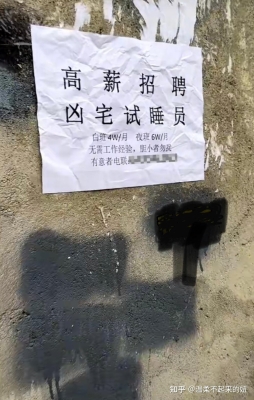 高薪招聘
凶宅试睡员
白班4W/月 夜班6W/月
无需工作经验,胆小者勿扰
有意者电联
知乎 @温柔不起来的饭